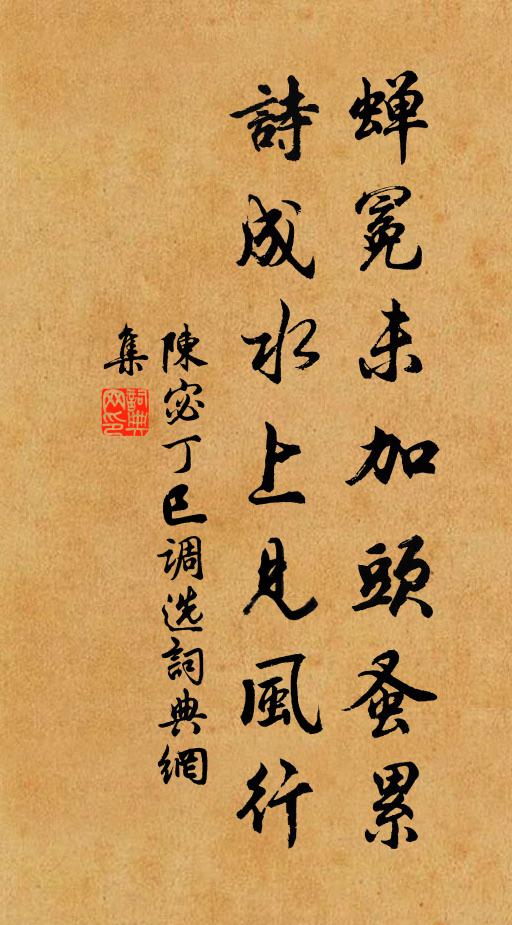 蝉冕未加頭蚤累
詩成水上見風行
陳宓丁巳調选詞典網
集
詞典網印